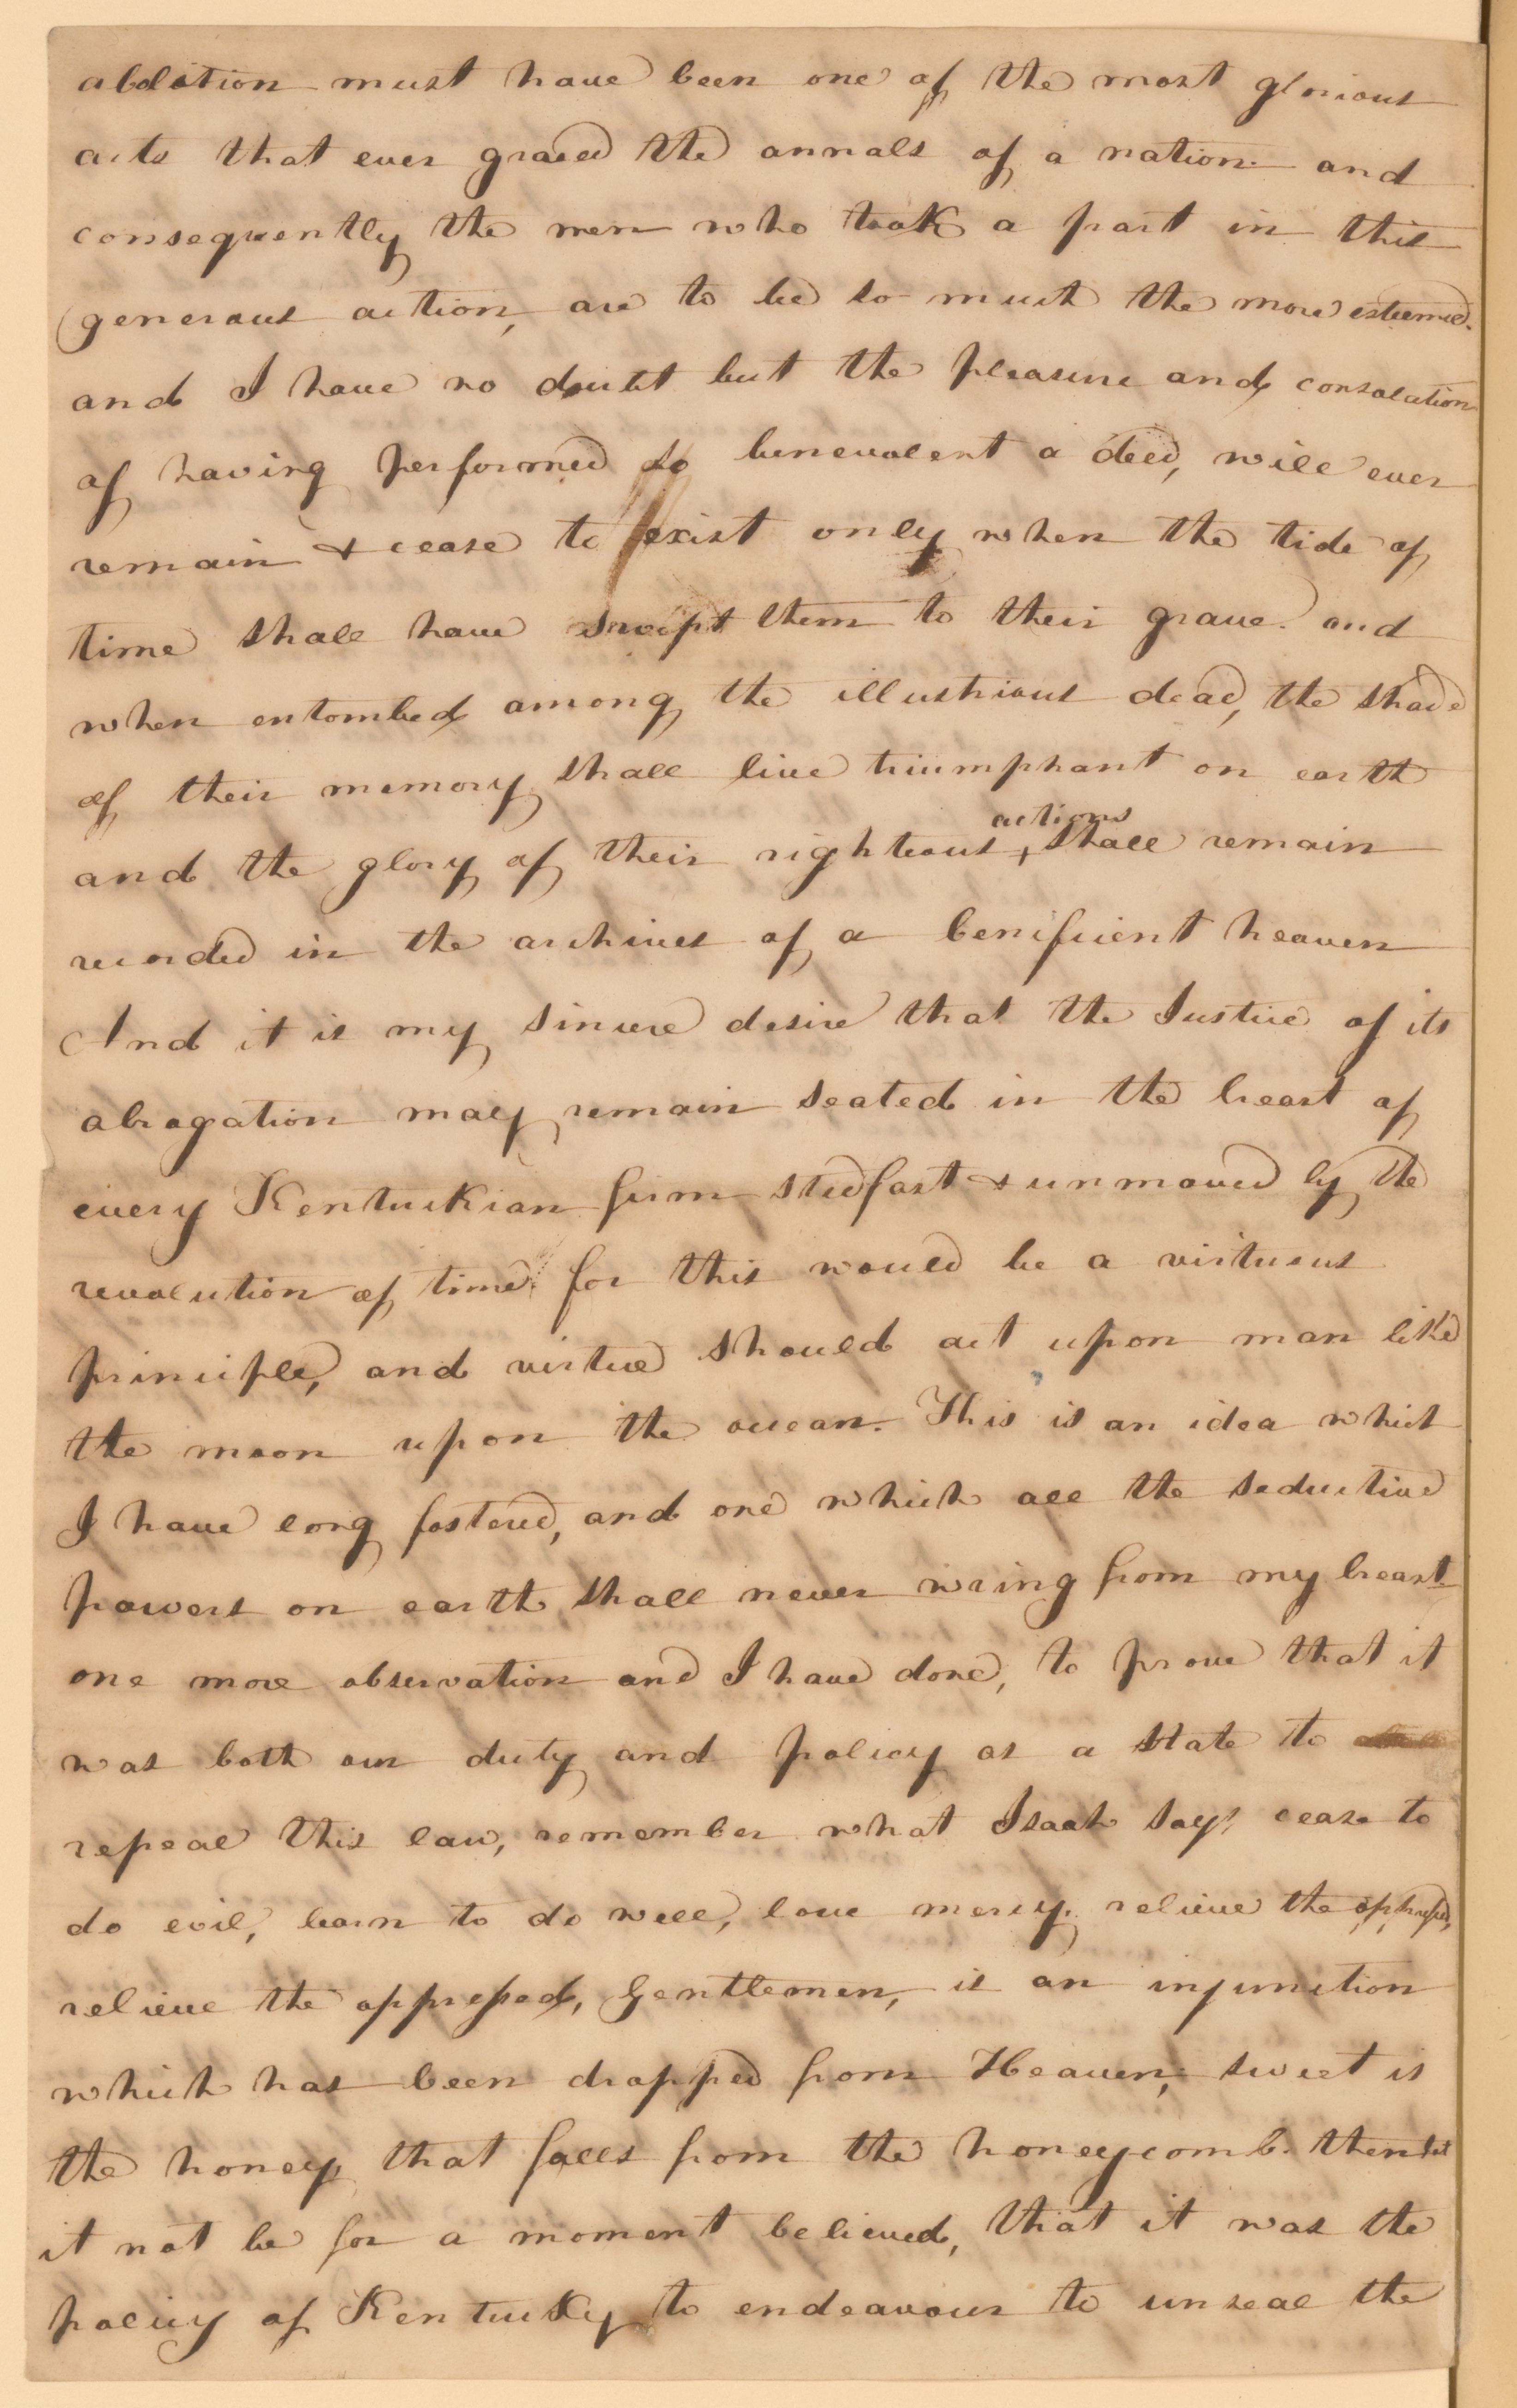 abolition must have been one of the most glorious
acts that ever graced the annals of a nation. and
consequently the men who took a part in this
generous action, are to be so much the more esteemed.
and I have no doubt but the pleasure and consolation
of having performed so benevolent a deed, will ever
remain & cease to exist only when the tide of
time shall have swept them to their grave. and
when entombed among the illustrious dead, the shade
of their memory shall live triumphant on earth
and the glory of their righteous + actions shall remain
recorded in the archives of a benificient heaven
And it is my sincere desire that the Justice of its
abrogation may remain seated in the heart of
every Kentuckian firm stedfast & unmoved by the
revolution of time. for this would be a virtuous
principle, and virtue should act upon man like
the moon upon the ocean. This is an idea which
I have long fostered, and one which all the seductive
powers on earth shall never wring from my heart.
one more observation and I have done, to prove that it
was both our duty and policy as a state to
repeal this law, remember what Isaah says, cease to
do evil, learn to do well, love mercy. relieve the oppressed,
relieve the oppressed, Gentlemen, is an injunction
which has been dropped from Heaven; sweet is
the honey that falls from the honeycomb. then let
it not be for a moment believed, that it was the
policy of Kentucky to endeavour to unseal the